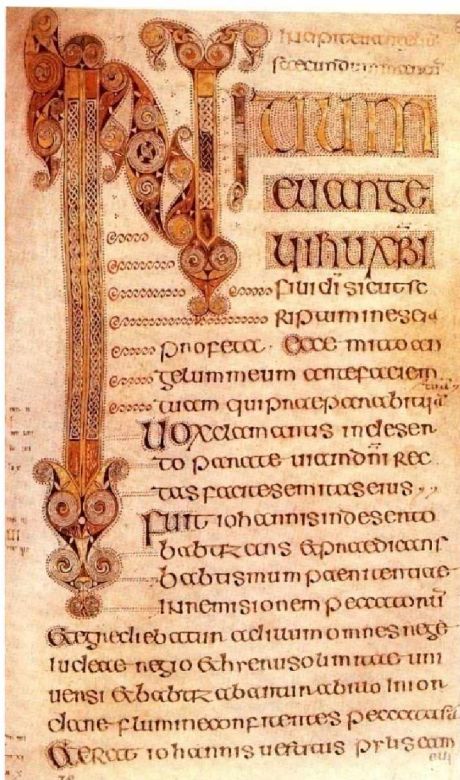 INITIUM
euange
lii ihu xpi
fili di sicut sc
riptum in esaia
profeta · Ecce mitto an
gelum meum ante faciem
tuam qui praeparabit uiā
tuā
Uox clamantis in deser
to parate uiam dni rec
tas facite semitas eius
Fuit iohannis in deserto
babtizans & praedicans
babtismum paenitentiae
in remisionem peccatorū
& egrediebatur ad illum omnes
iudeae regio & hierusolimitae uni
uersi & babtizabantur ab illo in ior
dane flumine confitentes peccata sua
& erat iohannis uestitus pylis cam